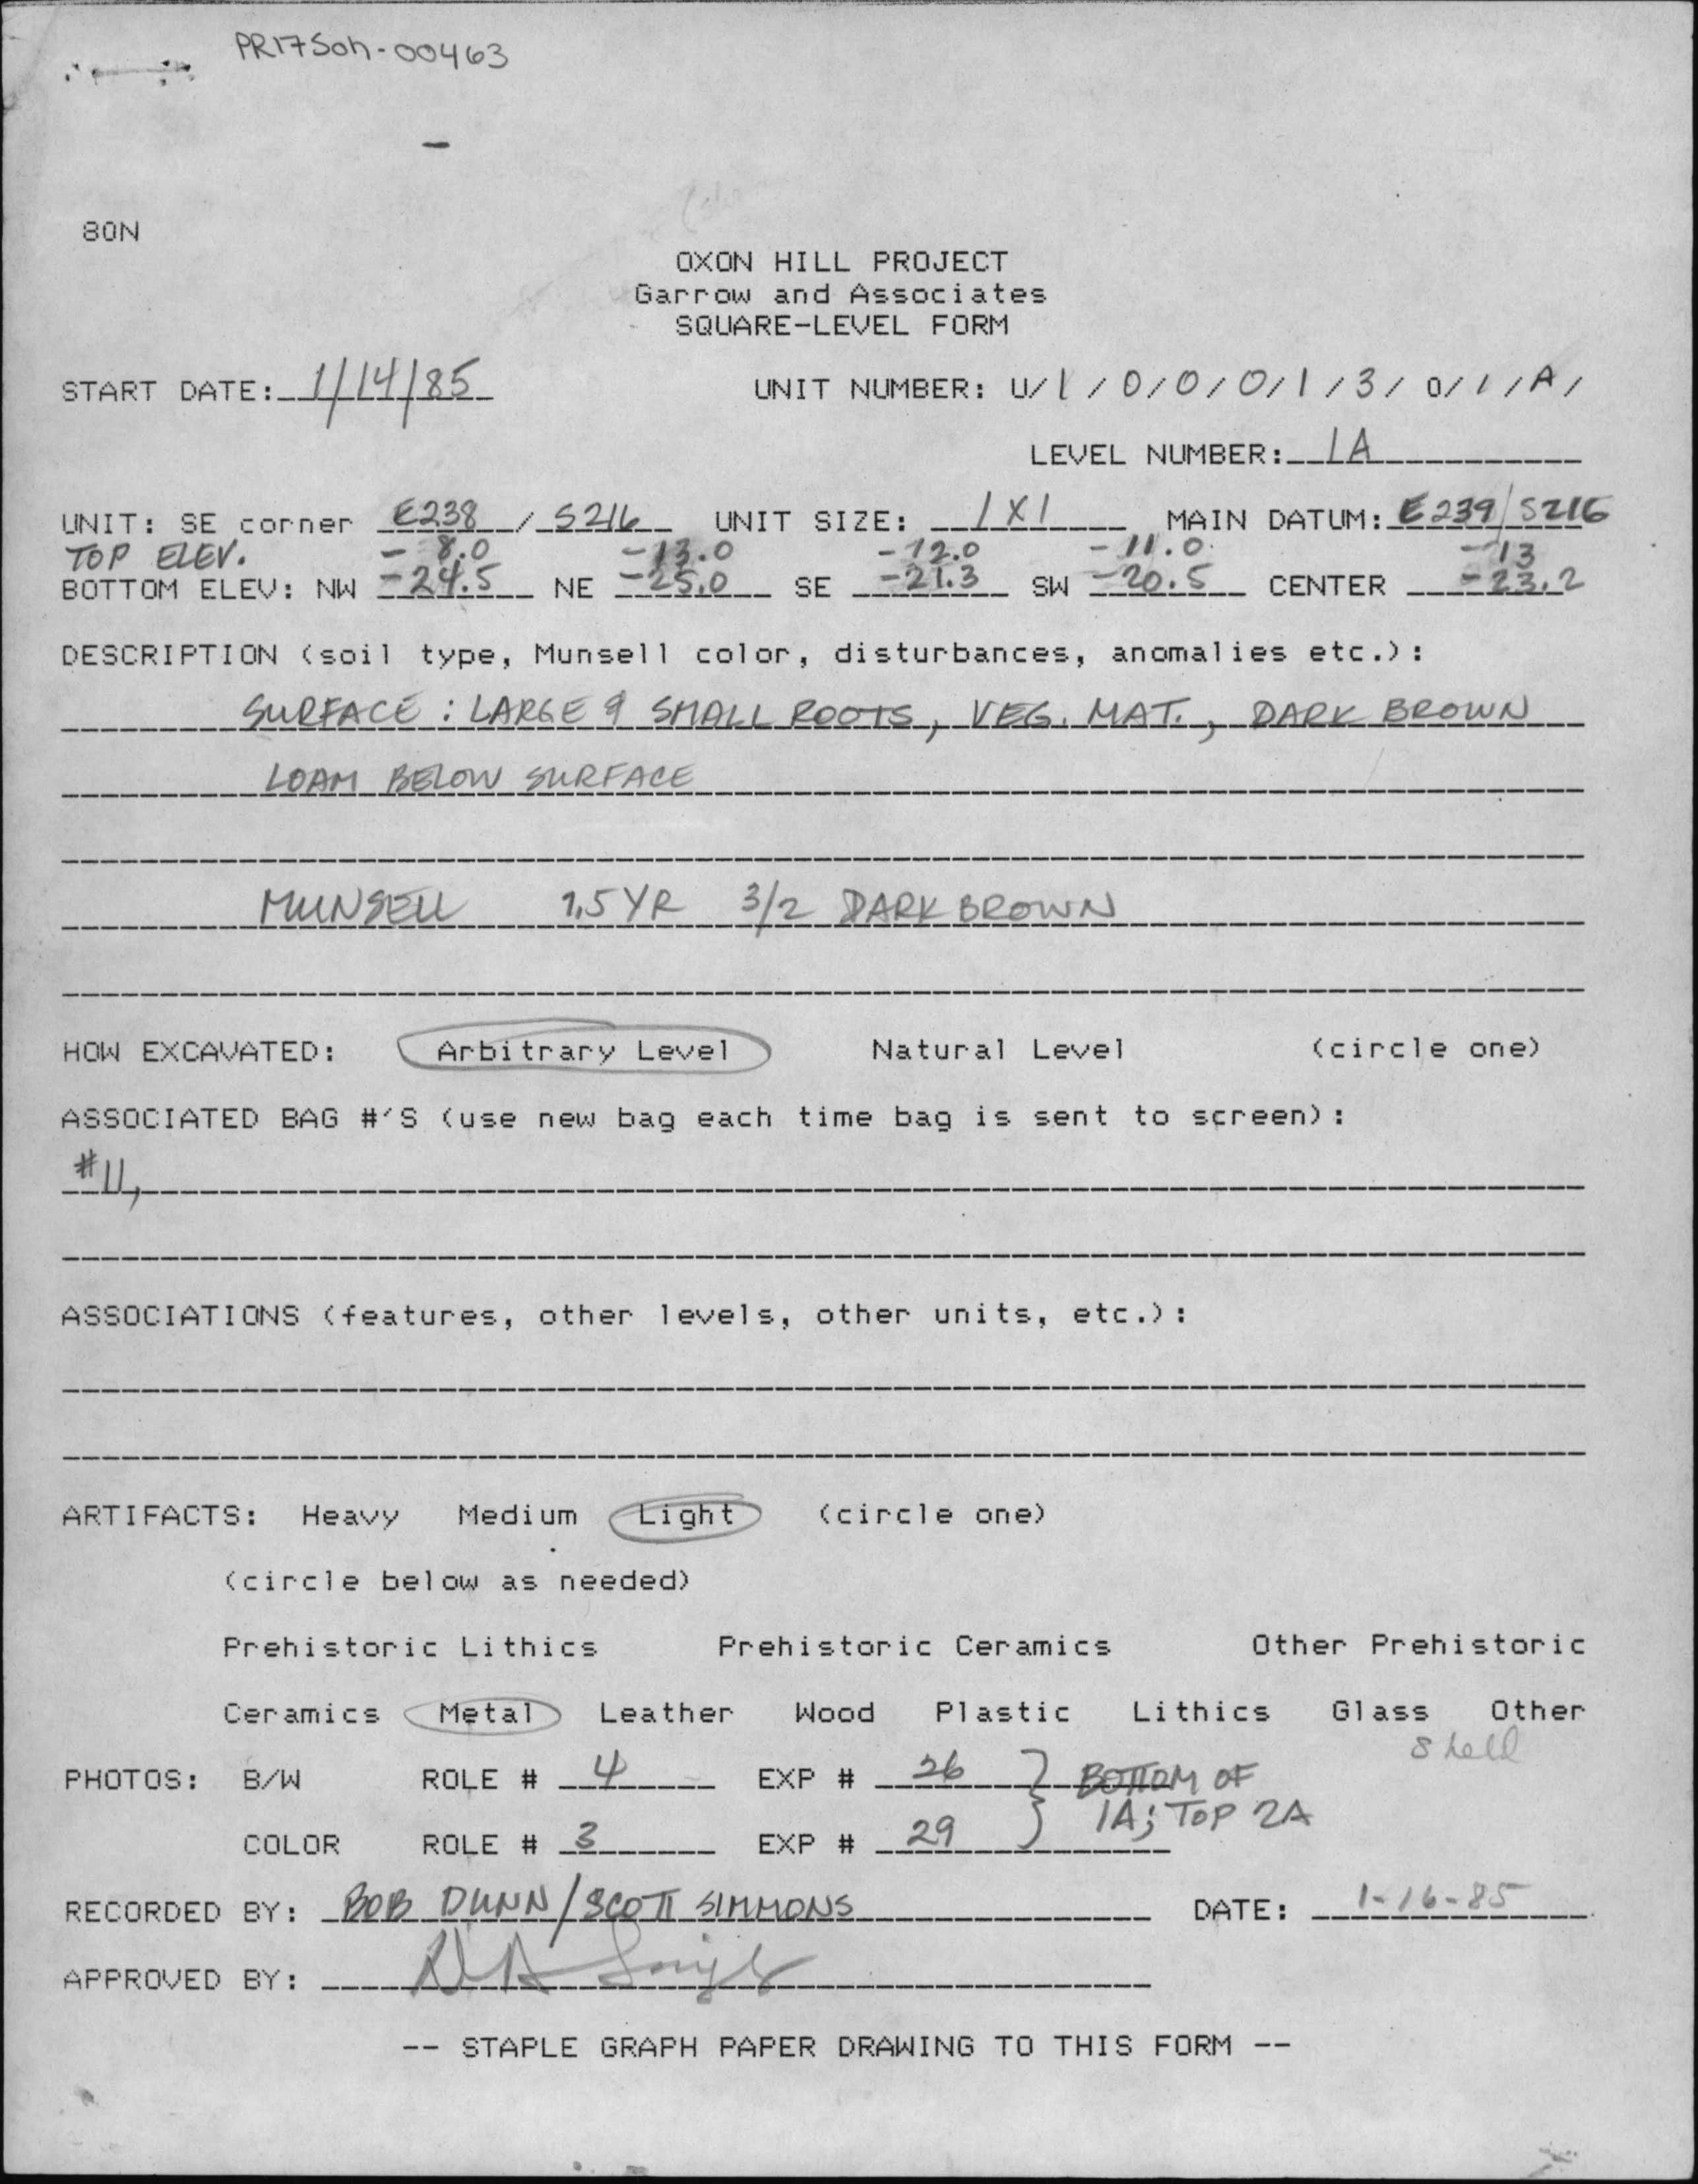 PR175oh-00463
80N
OXON HILL PROJECT
Garrow and Associates
SQUARE-LEVEL FORM
START DATE: 1/14/85 UNIT NUMBER: U/1/0/0/0/1/3/0/1/A/
LEVEL NUMBER: 1A
UNIT: SE corner E238 / S216 UNIT SIZE: 1X1 MAIN DATUM: E239/S216
TOP ELEV. -8.0 -13.0 -12.0 -11.0 -13
BOTTOM ELEV: NW -24.5 NE -25.0 SE -21.3 SW -20.5 CENTER -23.2
DESCRIPTION (soil type, Munsell color, disturbances, anomalies etc.):
SURFACE: LARGE & SMALL ROOTS, VEG. MAT., DARK BROWN
LOAM BELOW SURFACE
MUNSELL 7.5 YR 3/2 DARK BROWN
HOW EXCAVATED: Arbitrary Level Natural Level (circle one)
ASSOCIATED BAG #'S (use new bag each time bag is sent to screen):
#11,
ASSOCIATIONS (features, other levels, other units, etc.):
ARTIFACTS: Heavy Medium Light (circle one)
(circle below as needed)
Prehistoric Lithics Prehistoric Ceramics Other Prehistoric
Ceramics Metal Leather Wood Plastic Lithics Glass Other
Shell
PHOTOS: B/W ROLE # 4 EXP # 26 } BOTTOM OF
1A; TOP 2A
COLOR ROLE # 3 EXP # 29 }
RECORDED BY: BOB DUNN/SCOTT SIMMONS DATE: 1-16-85
APPROVED BY:
-- STAPLE GRAPH PAPER DRAWING TO THIS FORM --